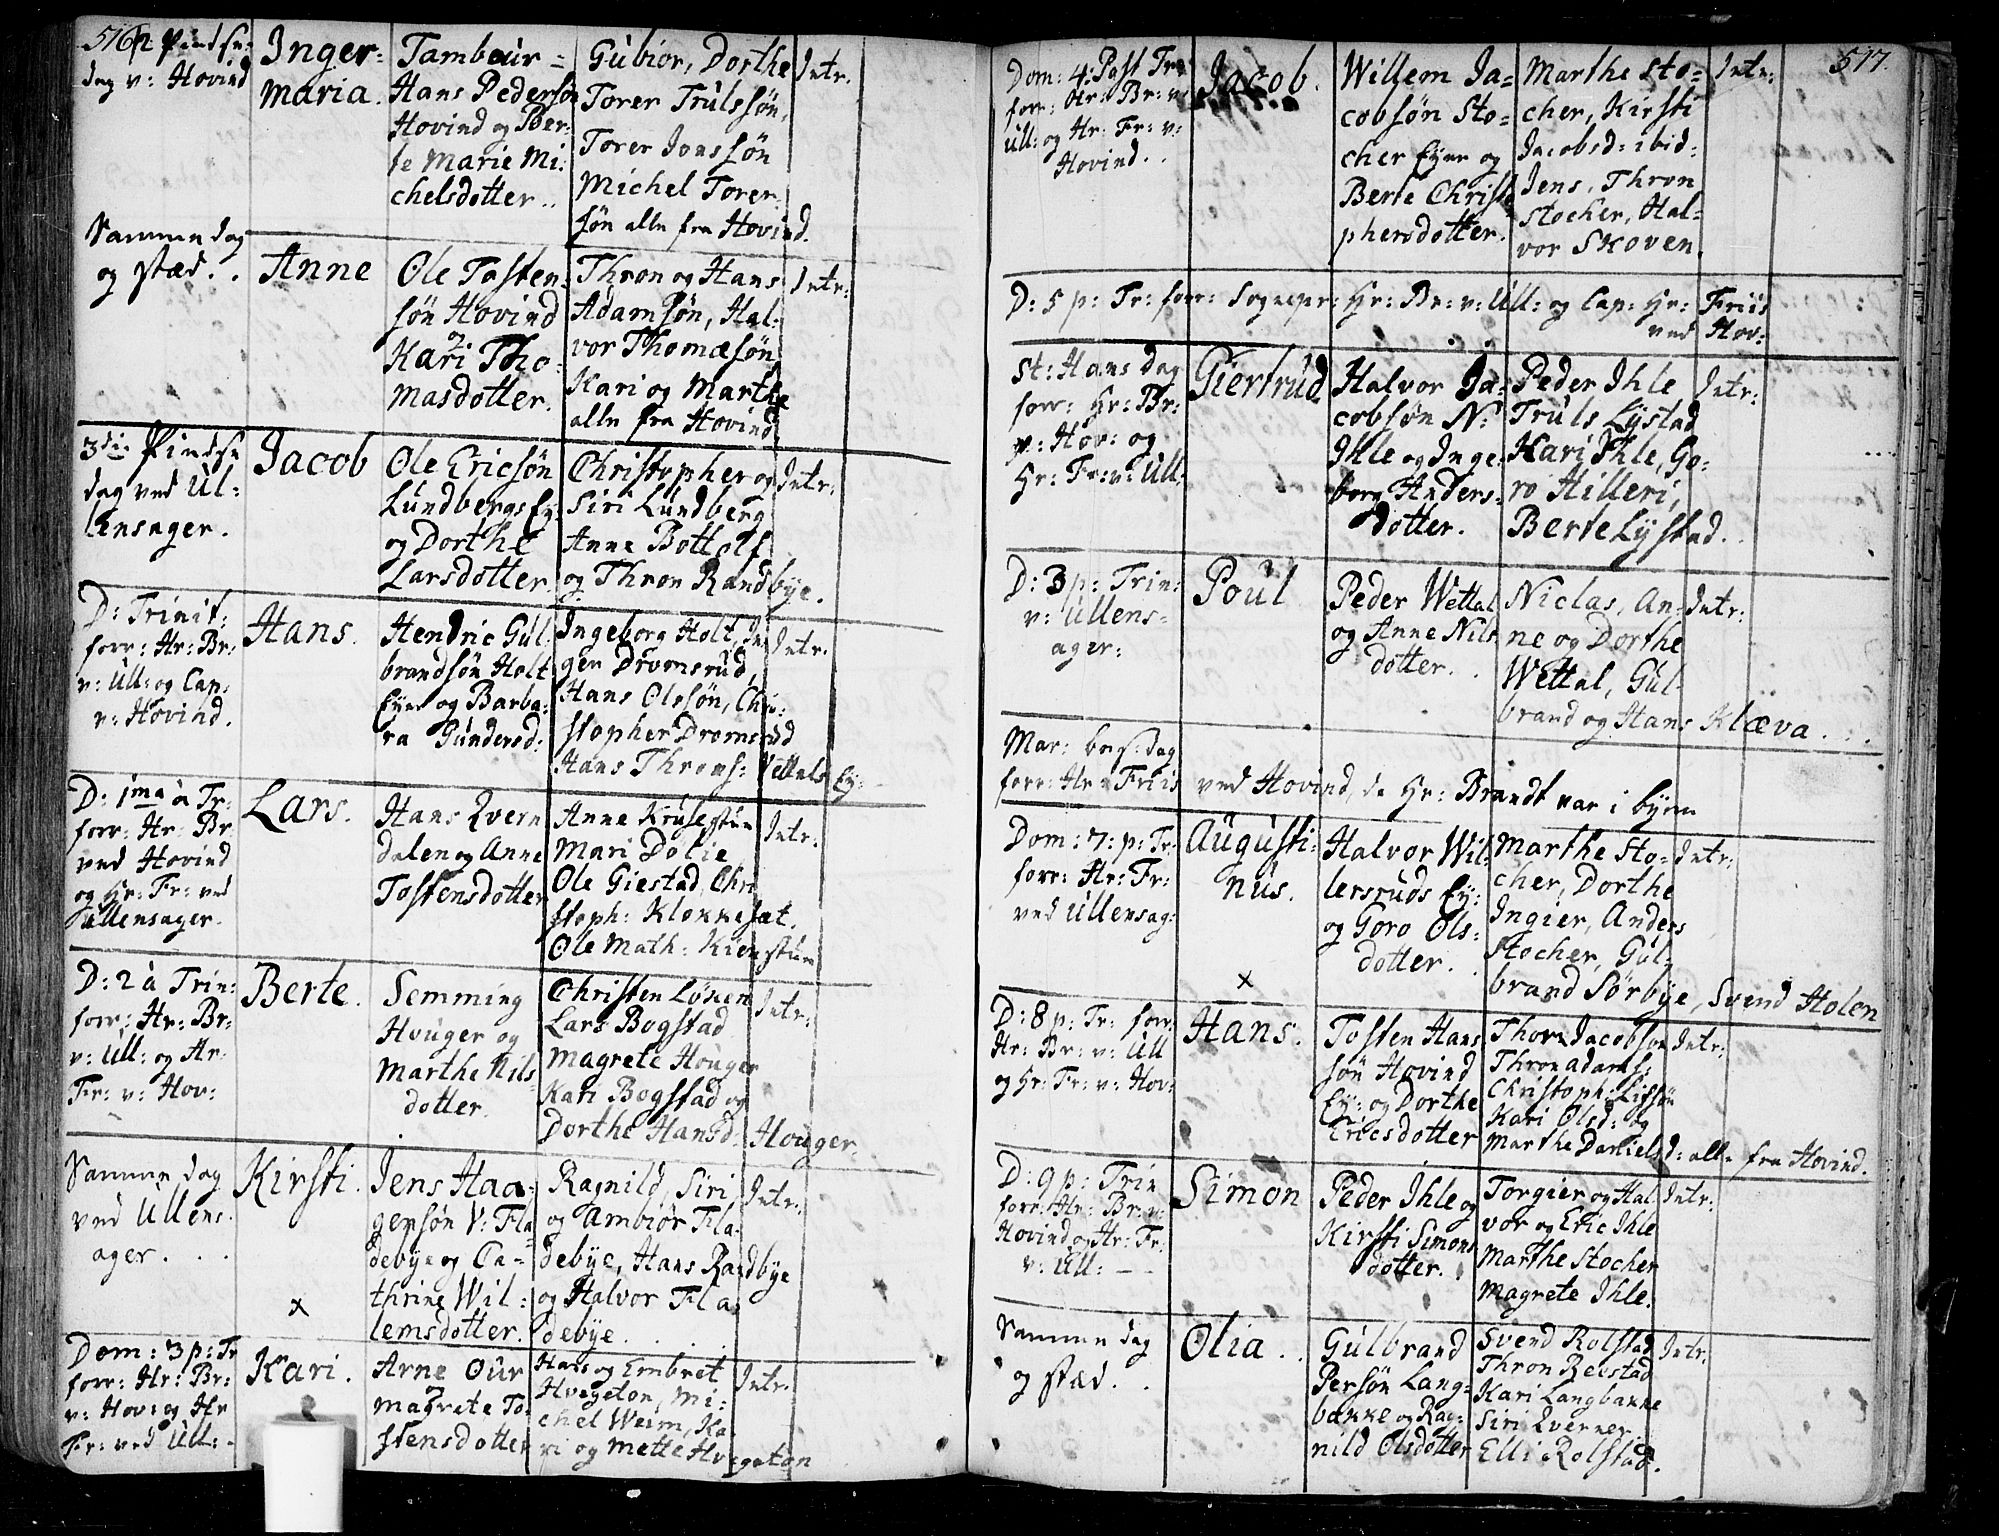 516
2 Pindse-
dag v: Hovind
Inger-
Maria.
Tambour=
Hans Pedersøn
Hovind og Ber-
te Marie Mi-
chelsdotter..
Gubior, Dorthe
Torer Trulssøn,
Torer Jonssøn
Michel Torer-
søn alle fra Hovind.
Intr.
Samme dag
og stæd..
Anne
Ole Tosten-
søn Hovind
og
Kari Tho-
masdotter.
Thron og Hans
Adamsøn, Hal-
vor Thomæsøn
Kari og Marthe
alle fra Hovind
Intr:
3die Pindse
dag ved Ul-
lensager.
Jacob
Ole Ericsøn
Lundbergs Ey:
og Dorthe
Larsdotter
Christopher og
Siri Lundberg
Anne Bottolf
og Thron Randbye.
Intr:
D: Trinit:
forr: Hr: Br:
v: Ull: og Cap:
v: Hovind.
Hans.
Hendric Gul-
brandsøn Holt
Eyer og Barba-
ra Gundersd:
Ingeborg Holt, In-
ger Dromsrud,
Hans Olssøn, Chri-
stopher Dromsrud
Hans Throns: Vettals Ey:
Intr.
D: 1ma à Tr:
forr: Hr: Br
ved Hovind
og Hr: Fr: ved
Ullensager.
Lars.
Hans Qvern
dalen og Anne
Tostensdotter
Anne Krusestuen
Mari Dolie
Ole Giestad, Chri
stoph: Klokkesæt.
Ole Math: Kienstuen
Intr:
D: 2 à Trin:
forr: Hr: Br:
v: Ull: og Hr:
Fr: v: Hov:
Berte.
Semming
Houger og
Marthe Nils-
dotter.
Christen Løken
Lars Bogstad
Magrete Houger
Kari Bogstad og
Dorthe Hansd: Houger.
Intr:
Samme dag
ved Ullens-
ager...
Kirsti.
x
Jens Haa-
gensøn V: Fla
debye og Ca-
thrine Wil-
lemsdotter.
Ragnild, Siri
og Ambior Fla-
debye, Hans Randbye
og Halvor Fla
debye.
Intr:
Dom: 3 p: Tr
forr: Hr: Br:
v: Hov: og Hr
Fr: ved Ull:
Kari.
Arne Our
og
Magrete To-
stensdotter
Hans og Embret
Hvegeton, Mi-
chel Weim, Ka
ri og Mette Hvegeton
Intr.
517.
Dom: 4: Post Tr:
forr: Hr: Br: v:
Ull: og Hr: Fr: v:
Hovind..
Jacob.
Willem Ja-
cobsøn Sto-
cher Eyer og
Berte Christo
phersdotter.
Marthe Sto-
cher, Kirsti
Jacobsd: ibid:
Jens, Thron
Stocher, Hal-
vor Skoven.
Intr:
D: 5 p: Tr: forr: Sognepr: Hr: Br: v: Ull: og Cap: Hr: Friis
ved Hov:
St: Hans dag
forr: Hr: Br:
v: Hov: og
Hr: Fr: v: Ull.
Giertrud
Halvor Ja-
cobsøn N:
Ihle og Inge
borg Anders-
dotter.
Peder Ihle
Truls Lystad
Kari Ihle, Go-
ro Hilleri,
Berte Lystad.
Intr:
D: 3 p: Trin:
v: Ullens-
ager:
Poul
Peder Wettal
og Anne Nils
dotter..
Niclas, An-
ne og Dorthe
Wettal, Gul-
brand og Hans Klæva...
Intr:
Mar: bes: dag
forr: Hr: Friis ved Hovind, da Hr: Brandt var i byen
Dom: 7: p: Tr:
forr: Hr: Fr:
ved Ullensag:
Augusti-
nus.
x
Halvor Wil-
lersruds Ey:
og Goro Ols-
dotter..
Marthe Sto-
cher, Dorthe
Ingier, Anders
Stocher, Gul-
brand Sørbye, Svend Holen
Intr:
D: 8 p: Tr: forr:
Hr: Br: v: Ull
og Hr: Fr: v: Hov:
Hans.
Tosten Hans
søn Hovind
Ey: og Dorthe
Ericsdotter
Thor Jacobsøn
Thron Adams:
Christoph: Lissøn
Kari Olsd: og
Marthe Danielsd: alle fra Hovind.
Intr:
D: 9 p: Trin
forr: Hr: Br: v:
Hovind og Hr: Fr:
v: Ull:
Simon
Peder Ihle og
Kirsti Simons
dotter.
Torgier og Hal
vor og Eric Ihle
Marthe Stocher
Magrete Ihle.
Intr:
Samme dag
og stæd..
Olia..
Gulbrand
Persøn Lang-
bakke og Rag-
nild Olsdotter
Svend Rolstad
Thron Reistad
Kari Langbakke
Siri Qverner
Elli Rolstad.
Intr.